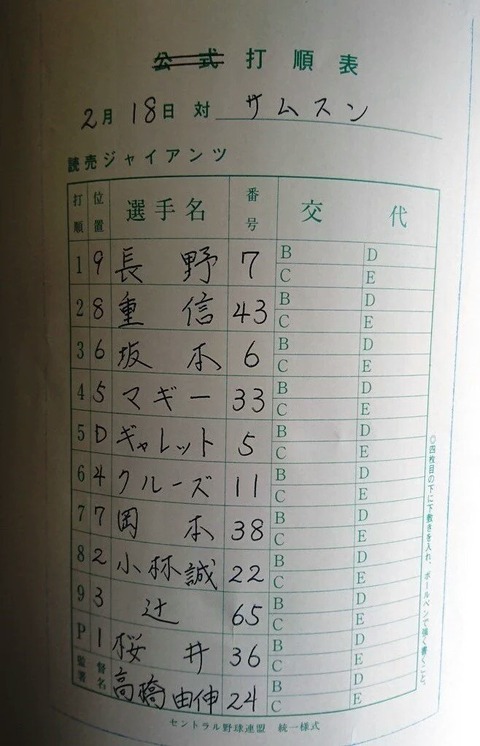 公式打順表
2月18日 対 サムスン
読売ジャイアンツ
打順 位置 選手名 番号 交代
1 9 長野 7 B D C E
2 8 重信 43 B D C E
3 6 坂本 6 B D C E
4 5 マギー 33 B D C E
5 D ギャレット 5 B D C E
6 4 クルーズ 11 B D C E
7 7 岡本 38 B D C E
8 2 小林誠 22 B D C E
9 3 辻 65 B D C E
P 1 桜井 36 B D C E
監督署名 高橋由伸 24 B D C E
○四枚目の下に下敷きを入れ、ボールペンで強く書くこと。
セントラル野球連盟 統一様式